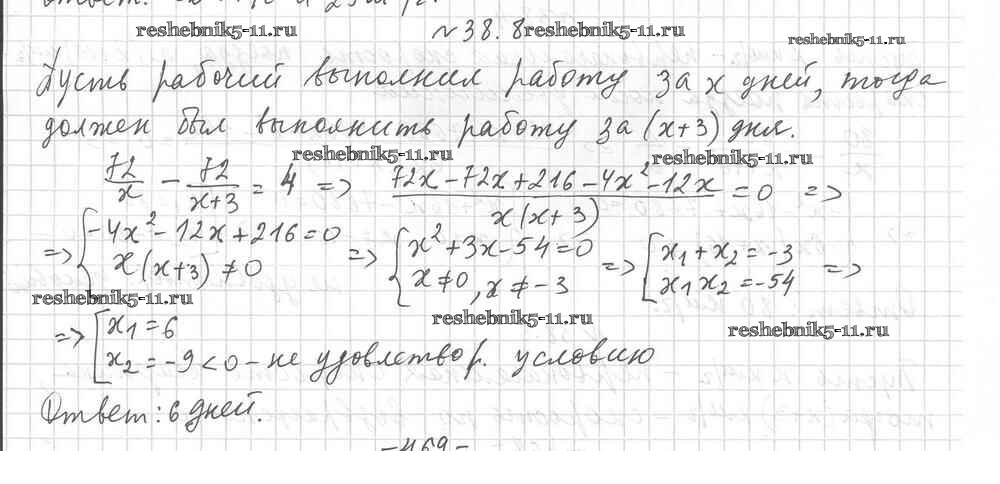 reshebnik5-11.ru №38.8 reshebnik5-11.ru reshebnik5-11.ru
Пусть рабочий выполнил работу за x дней, тогда
должен был выполнить работу за (x+3) дня.
reshebnik5-11.ru reshebnik5-11.ru
72/x - 72/(x+3) = 4 => (72x-72x+216-4x²-12x)/(x(x+3)) = 0 =>
=> { -4x²-12x+216=0 ; x(x+3)≠0 => { x²+3x-54=0 ; x≠0, x≠-3 => [ x₁+x₂=-3 ; x₁x₂=-54 =>
reshebnik5-11.ru reshebnik5-11.ru reshebnik5-11.ru
=> [ x₁=6
x₂=-9<0 - не удовлетвор. условию
Ответ: 6 дней.
-469-